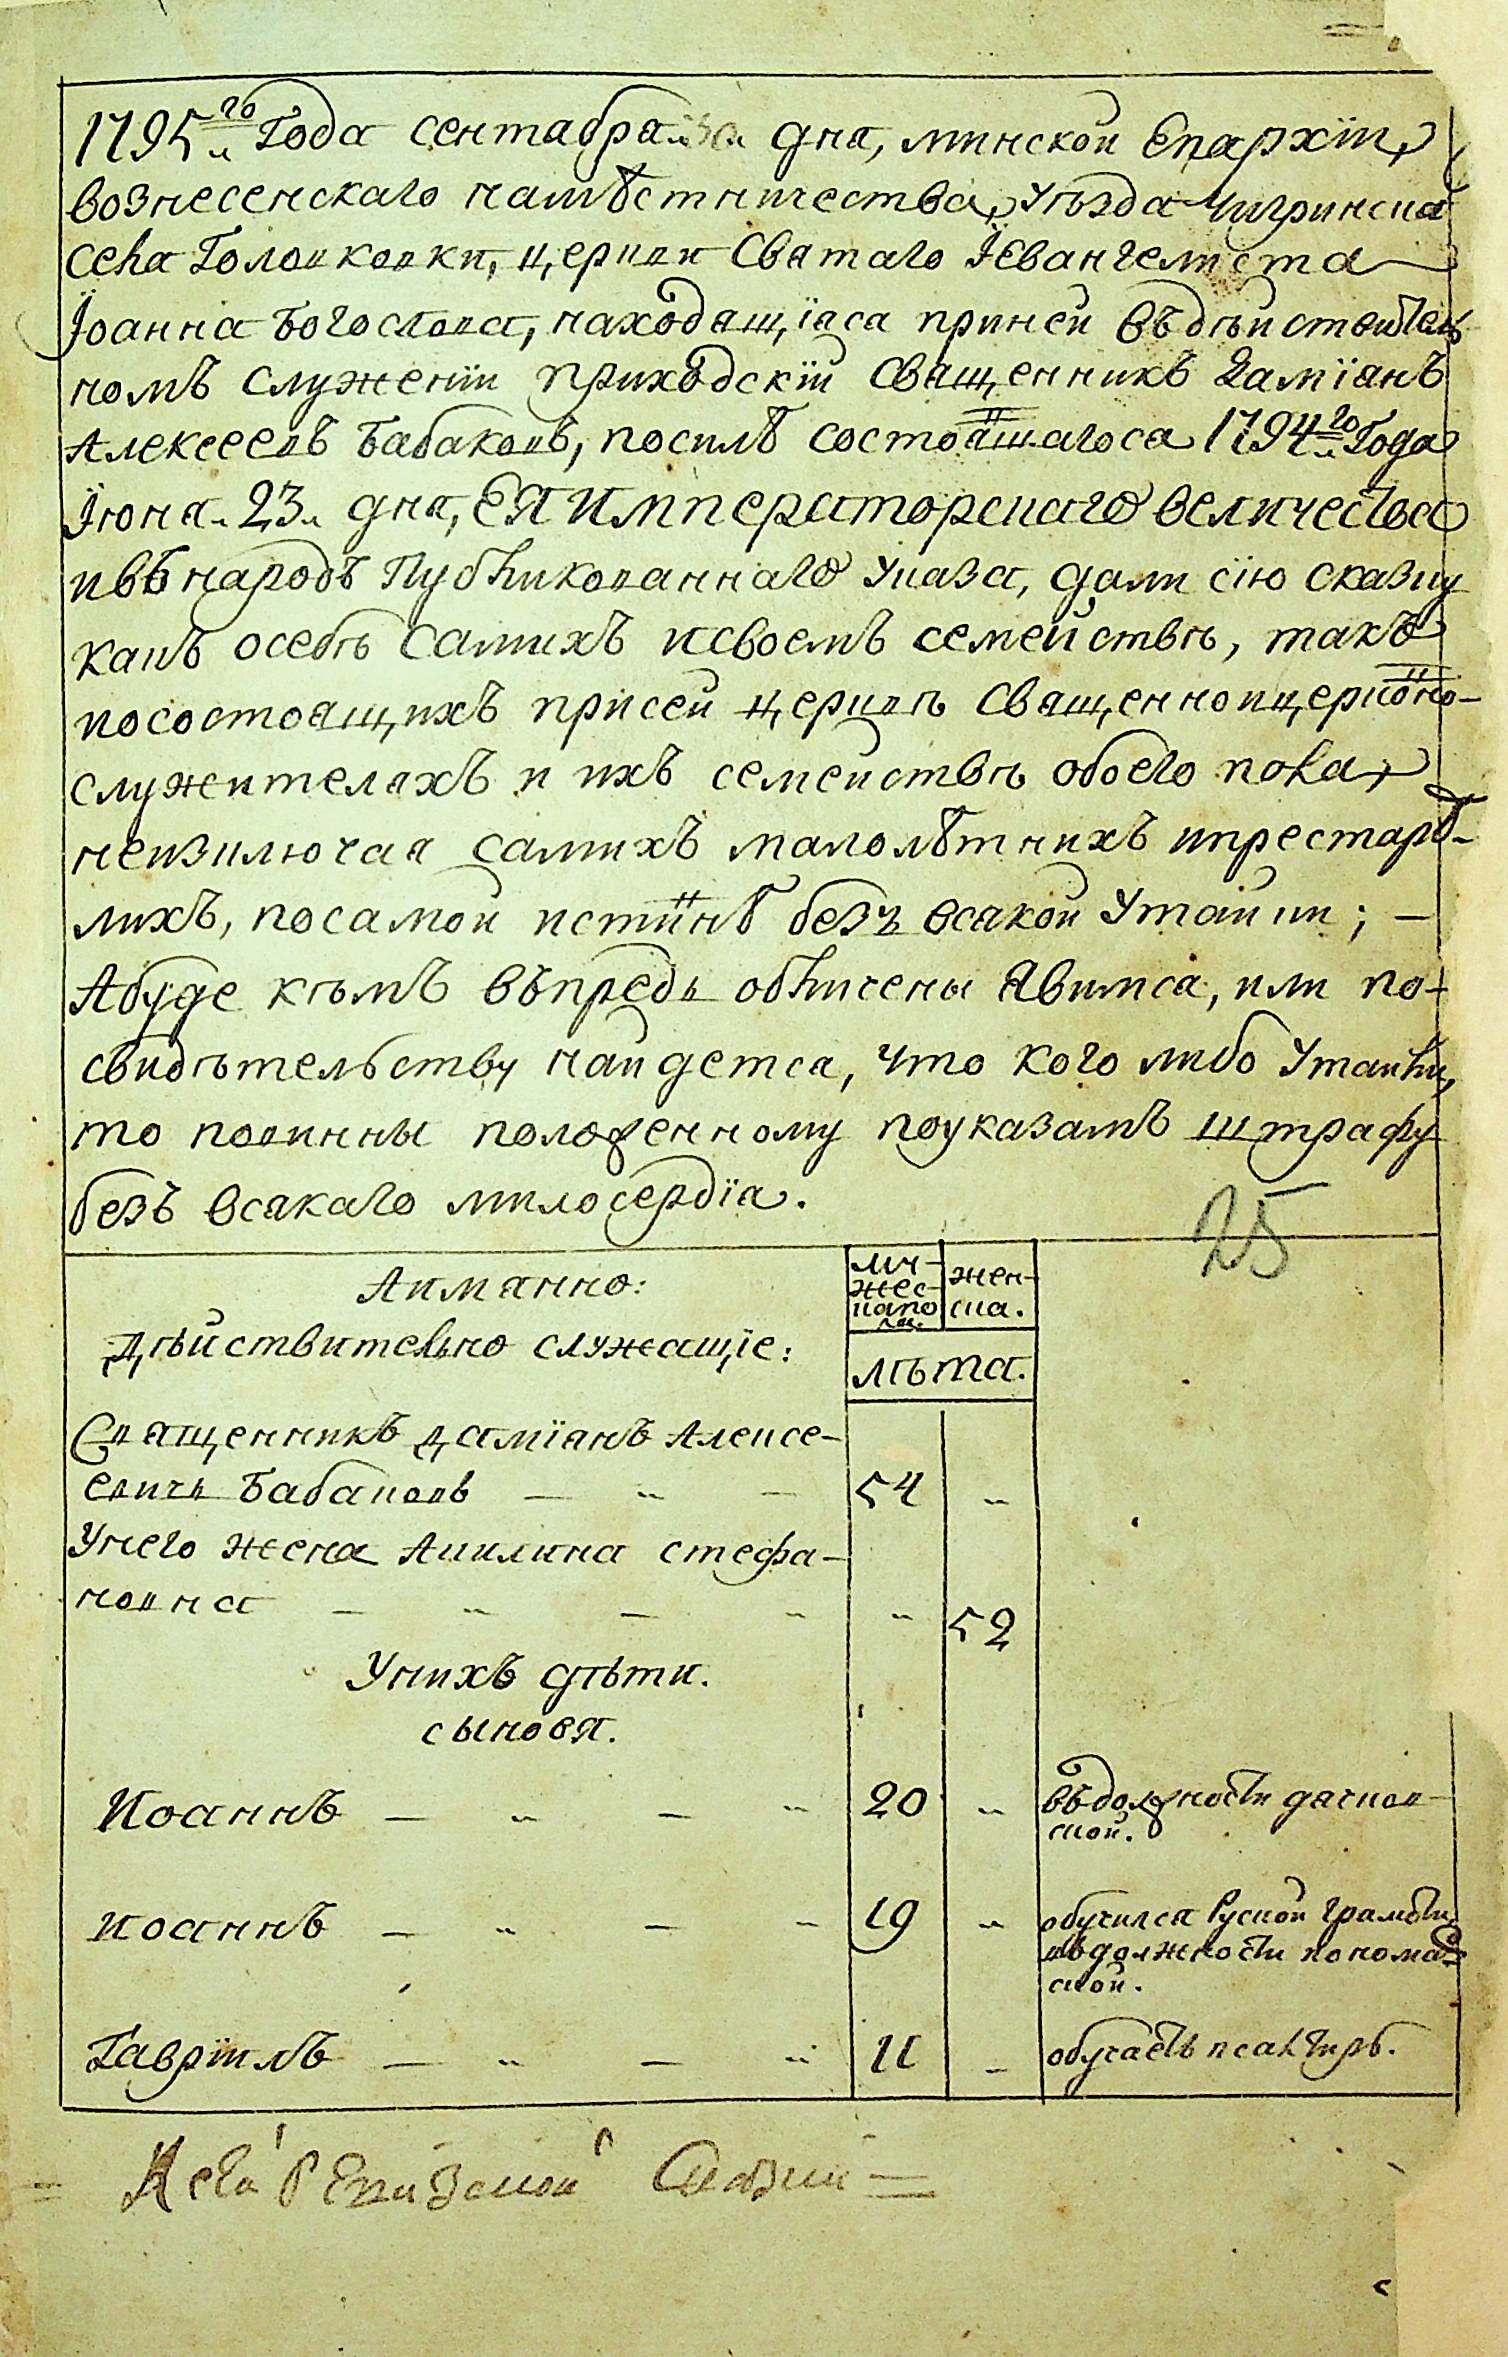 1795го Года сентабра дна, минской Епархїи,
вознесенскаго намѣстничества, уѣзда Чигринска
села Головковки, церкви Сватаго Іевангелиста
Їоанна Богослова, находащїаса приней въдѣйствител
номъ служенїи приходскїй сващенникъ Дамїанъ
Алексеевъ Бабаковъ, посилѣ состоявшагоса 1794го Года
Їюна 23 дна, ЕЯ Императорскаго величества
ивъ народъ Публикованнаго Указа, дали сїю сказку
какъ осебѣ самихъ исвоемъ семействѣ, такъ
посостоящихъ присей церквѣ сващенноицерковно-
служителахъ и ихъ семействѣ обоего пола,
неизключая самихъ малолѣтнихъ ипрестарѣ-
лихъ, посамой истиннѣ безъ всякой Утайки; —
Абуде кѣмъ въпредь обличены Явимса, или по-
свидѣтельству найдетса, что кого либо Утаили,
то повинны положенному поуказамъ штрафу
безъ всякаго милосердїа.
25
Аиманно:
дѣйствително служащїе:
муж-
жес-
каго
пола.
жен-
ска.
лѣта.
Священникъ Дамїанъ Алексе-
евичь Бабаковъ — „ — 54 „
Унего жена Акилина Стефа-
новна — „ — „ „ 52
Унихъ дѣти.
сыновя.
Иоаннъ — „ — „ 20 „ въдолжности дячков-
ской.
иоаннъ — „ — „ 19 „ обучился Руской грамоти,
въдолжности понома-
ской.
Гаврїилъ — „ — „ 11 — обучаеть псалтирь.